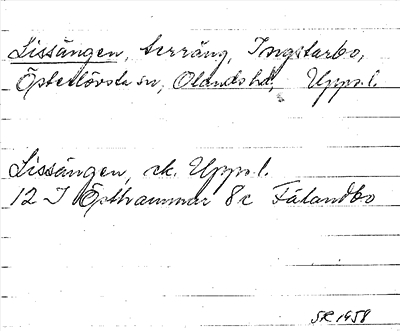 Lissängen, terräng, Ingstarbo,
Österlövsta sn, Olands hd, Upps. l.
Lissängen, ek. Upps. l.
12 I Östhammar 8c Fälandbo
SK 1958